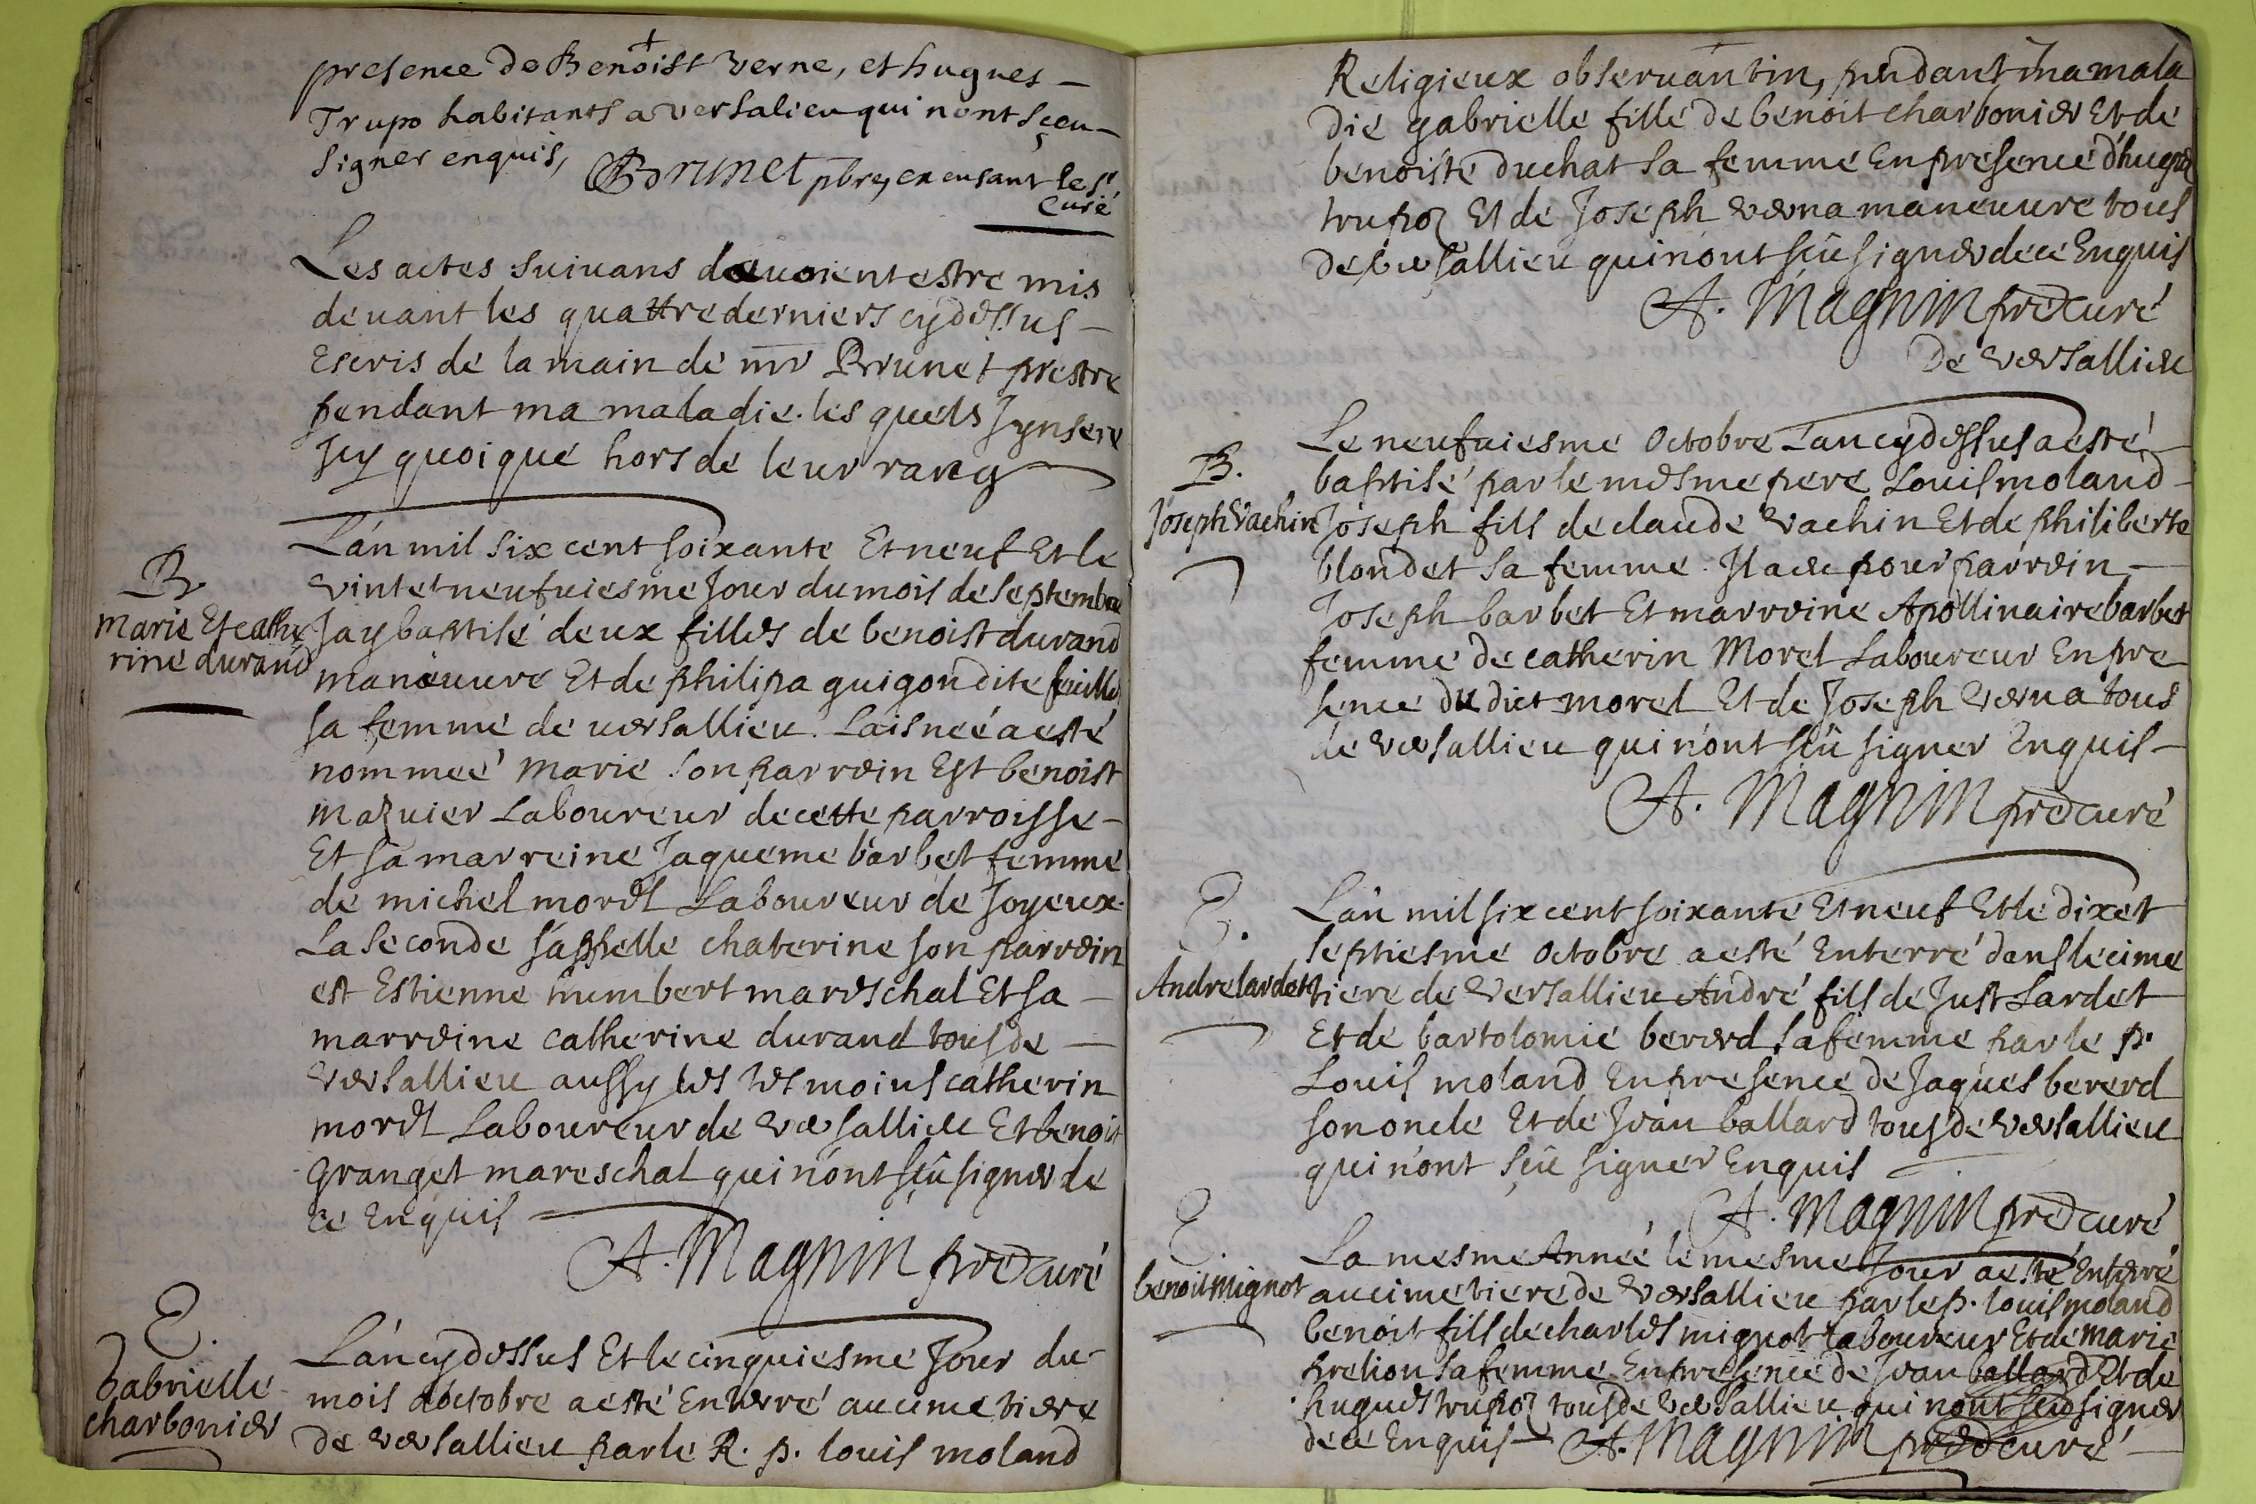 presence de Benoist verne, et hugues –
Trupo habitants a versalieu qui n'ont sçeu –
signer enquis, Brunet pbre, excusant le s.r
curé
Les actes suivans devoient estre mis
devant les quattre derniers cydessus –
Escris de la main de mr Brunet prestre
pendant ma maladie. les quels J'ynsere
Jcy quoique hors de leur rang
L'an mil six cent soixante Et neuf Et le
vint et neufuiesme Jour du mois de septembre
B
marie Et cathe
rine durand
J'ay baptisé deux filles de benoist durand
manœuure Et de philipa guigon dite feuille
sa femme de versallieu. Laisneé a esté
nommeé marie son parrein Est benoist
mazuier Laboureur de cette parroisse –
Et sa marreine Jaqueme barbet femme
de michel morel Laboureur de Joyeux.
La seconde s'appelle chaterine son parrein
est Estienne humbert mareschal Et sa –
marreine catherine durand tous de –
versallieu aussy les tesmoins catherin
morel Laboureur de versallieu Et benoit
granget mareschal qui n'ont sçû signer de
ce Enquis
A. Magnin pre curé
E.
gabrielle
charbonier
L'an cydessus Et le cinquiesme Jour du –
mois d'octobre a esté Enterré au cimetiere
de versallieu par le R. p. louis moland
Religieux observantin, pendant ma mala
die gabrielle fille de benoit charbonier Et de
benoiste duchat sa femme En presence d'hugues
trupoz Et de Joseph verna maneuure tous
de versallieu qui n'ont sçû signer de ce Enquis
A. Magnin pre curé
De versallieu
B.
Joseph vachin
Le neufuiesme octobre L'an cydessus a esté –
baptisé par le mesme pere Louis moland –
Joseph fils de claude vachin Et de philiberte
blondet sa femme. Jl a eu pour parrein –
Joseph barbet Et marreine Apollinaire barbet
femme de catherin Morel Laboureur En pre
sence du dict morel Et de Joseph verna tous
de versallieu qui n'ont sçû signer Enquis –
A. Magnin pre curé
E.
Andre lardet
L'an mil six cent soixante Et neuf Et le dix et
septiesme octobre a esté Enterré dans le cime
tiere de versallieu André fils de Just Lardet
Et de bartolomie bererd sa femme par le p.
Louis moland En presence de Jaques bererd
son oncle Et de Jean ballard tous de versallieu
qui n'ont sçû signer Enquis
A. Magnin pre curé
E.
benoit mignot
La mesme Année le mesme Jour a esté Enterré
au cimetiere de versallieu par le p. louis moland
benoit fils de charles mignot laboureur Et de marie
prelion sa femme En presence de Jean ballard Et de
hugues trupoz tous de versallieu qui n'ont sçû signer
de ce Enquis – A. Magnin pre curé –